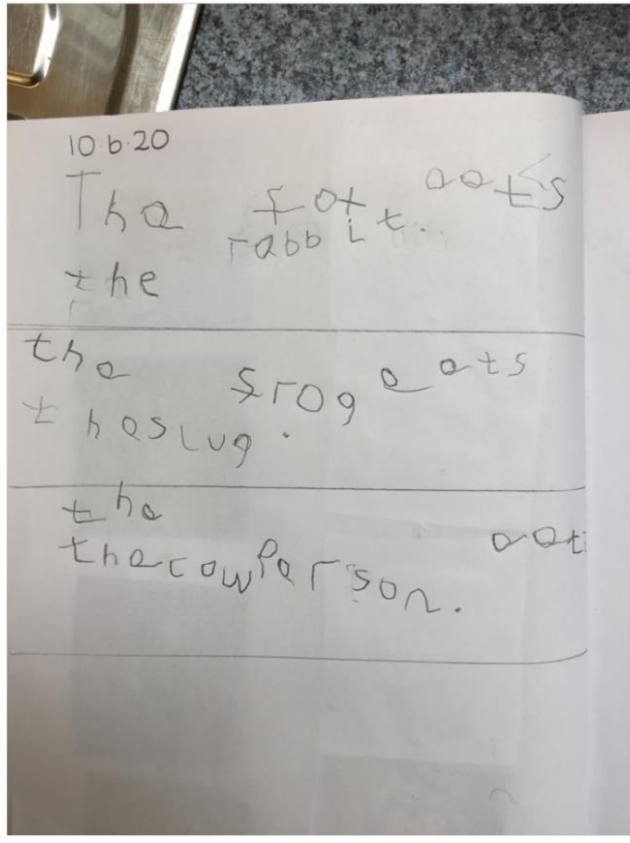 10.6.20
The fox eats
the rabbit..
the frog eats
the slug.
the eats
the cow person.